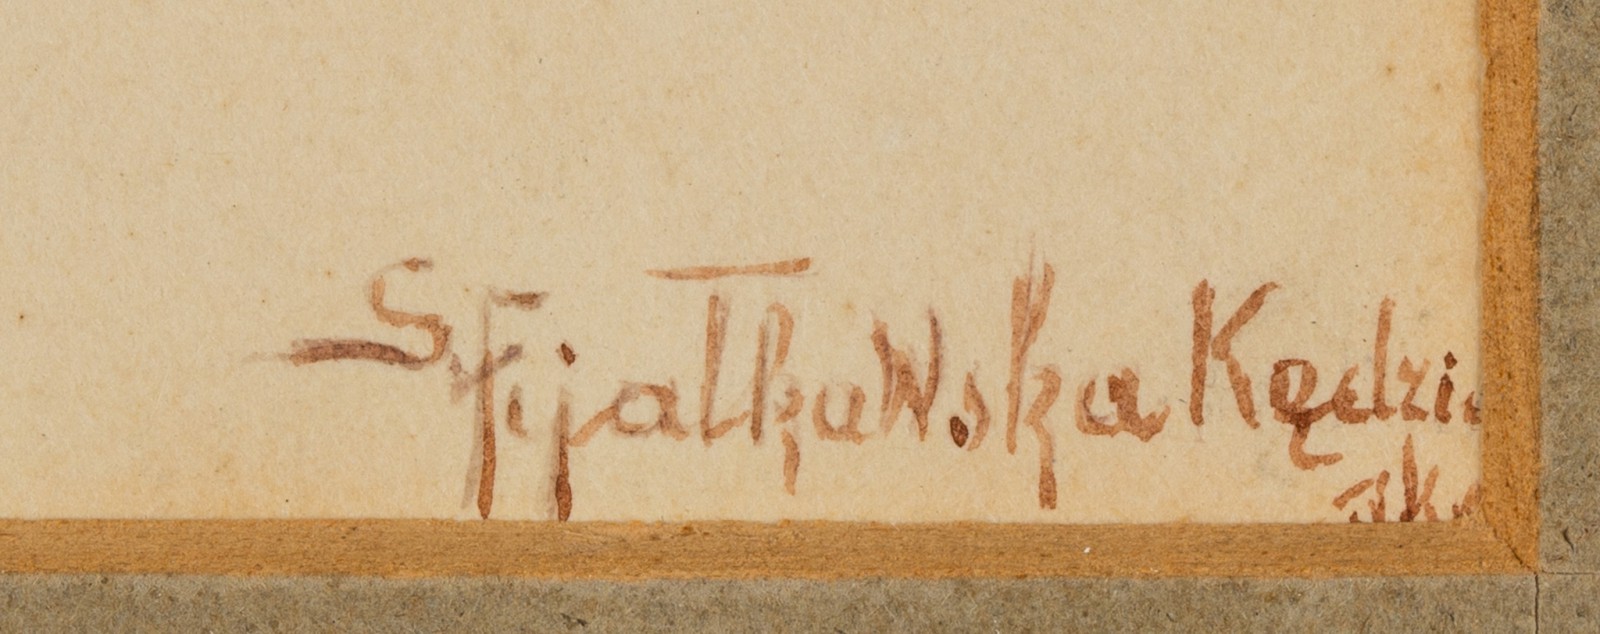 S. Fijałkowska Kędzi
ska